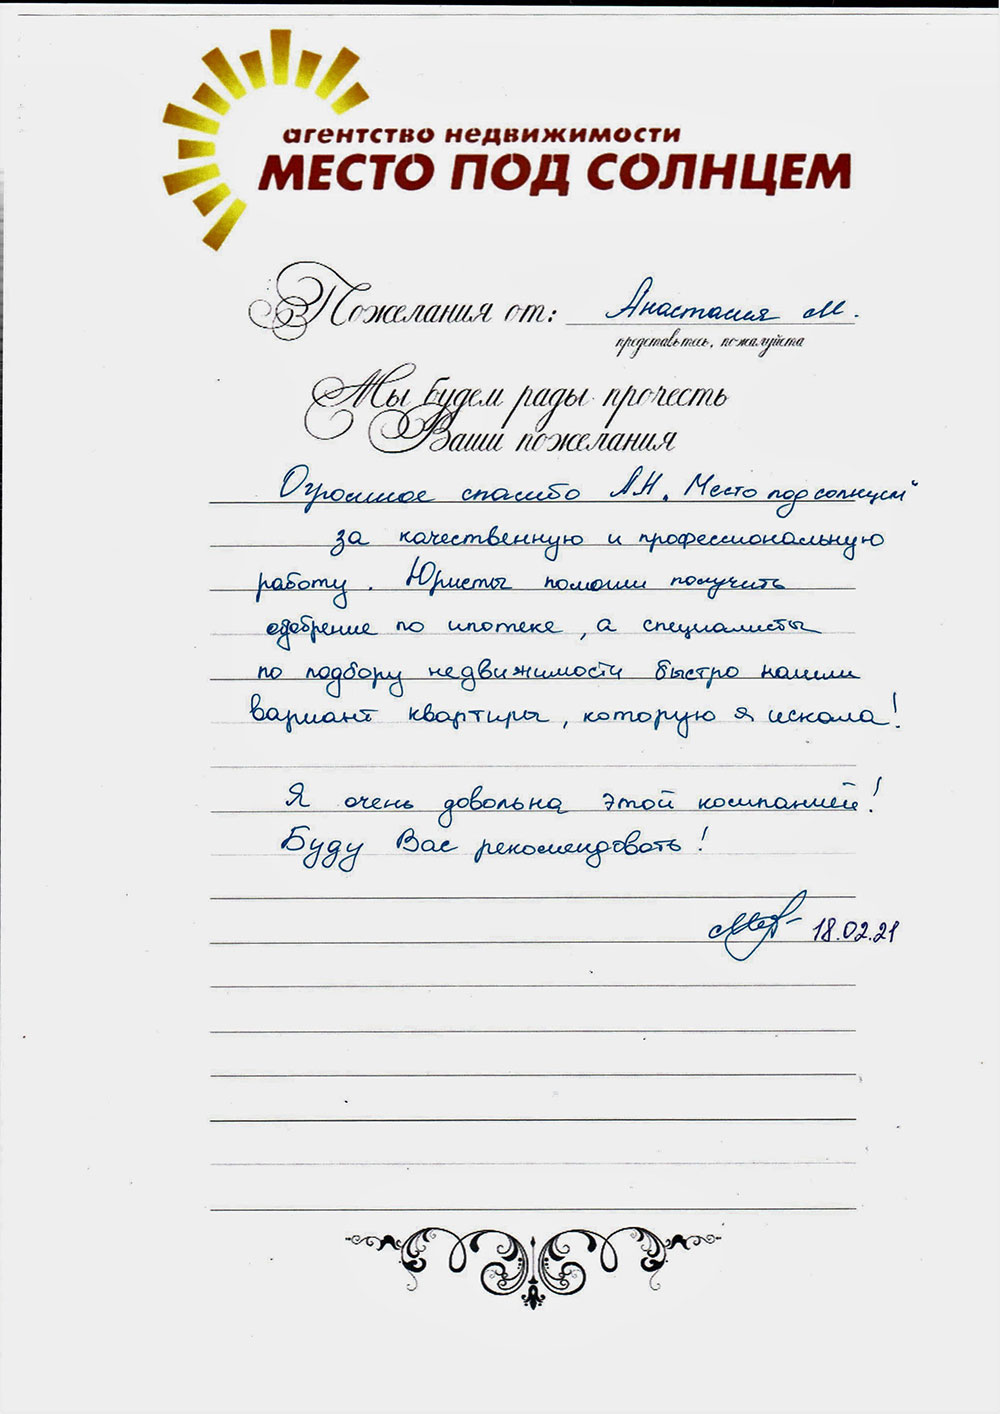 агентство недвижимости
МЕСТО ПОД СОЛНЦЕМ
Пожелания от: Анастасия М.
представьтесь, пожалуйста
Мы будем рады прочесть
Ваши пожелания
Огромное спасибо А.Н. "Место под солнцем"
за качественную и профессиональную
работу. Юристы помогли получить
одобрение по ипотеке, а специалисты
по подбору недвижимости быстро нашли
вариант квартиры, которую я искала!
Я очень довольна этой компанией!
Буду Вас рекомендовать!
18.02.21